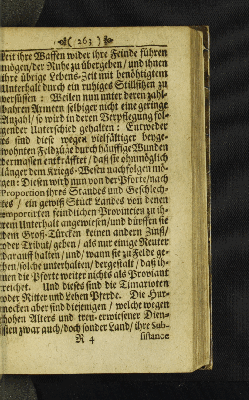 ( 263 )
keit ihre Waffen wider ihre Feinde führen
mögen/ der Ruhe zu übergeben / und ihnen
ihre übrige Lebens-Zeit mit benöhtigtem
Unterhalt durch ein ruhiges Stillsitzen zu
versüssen : Weilen nun unter deren zahl-
baren Armeen selbiger nicht eine geringe
Anzahl / so wird in deren Verpflegung fol-
gender Unterschied gehalten : Entweder
es sind diese wegen vielfältiger beyge-
wohnten Feldzüge durch häuffige Wunden
dermassen entkräfftet / daß sie ohnmöglich
länger dem Kriegs-Wesen nachfolgen mö-
gen : Diesen wird nun von der Pforte/nach
Proportion ihres Standes und Geschlech-
tes / ein gewiß Stück Landes von denen
emporirten feindlichen Provincien zu ih-
rem Unterhalt angewiesen/und dürffen sie
dem Groß-Türcken keinen andern Zinß/
oder Tribut geben / als nur einige Reuter
darauff halten / und / wann sie zu Felde ge-
hen/solche unterhalten/ dergestalt / daß ih-
nen die Pforte weiter nichts als Proviant
reichet. Und dieses sind die Timarioten
oder Ritter und Lehen Pferde. Die Hur-
nocken aber sind diejenigen / welche wegen
hohen Alters und treu-erwiesener Dien-
sten zwar auch/ doch sonder Land/ ihre Sub-
R 4 sistance